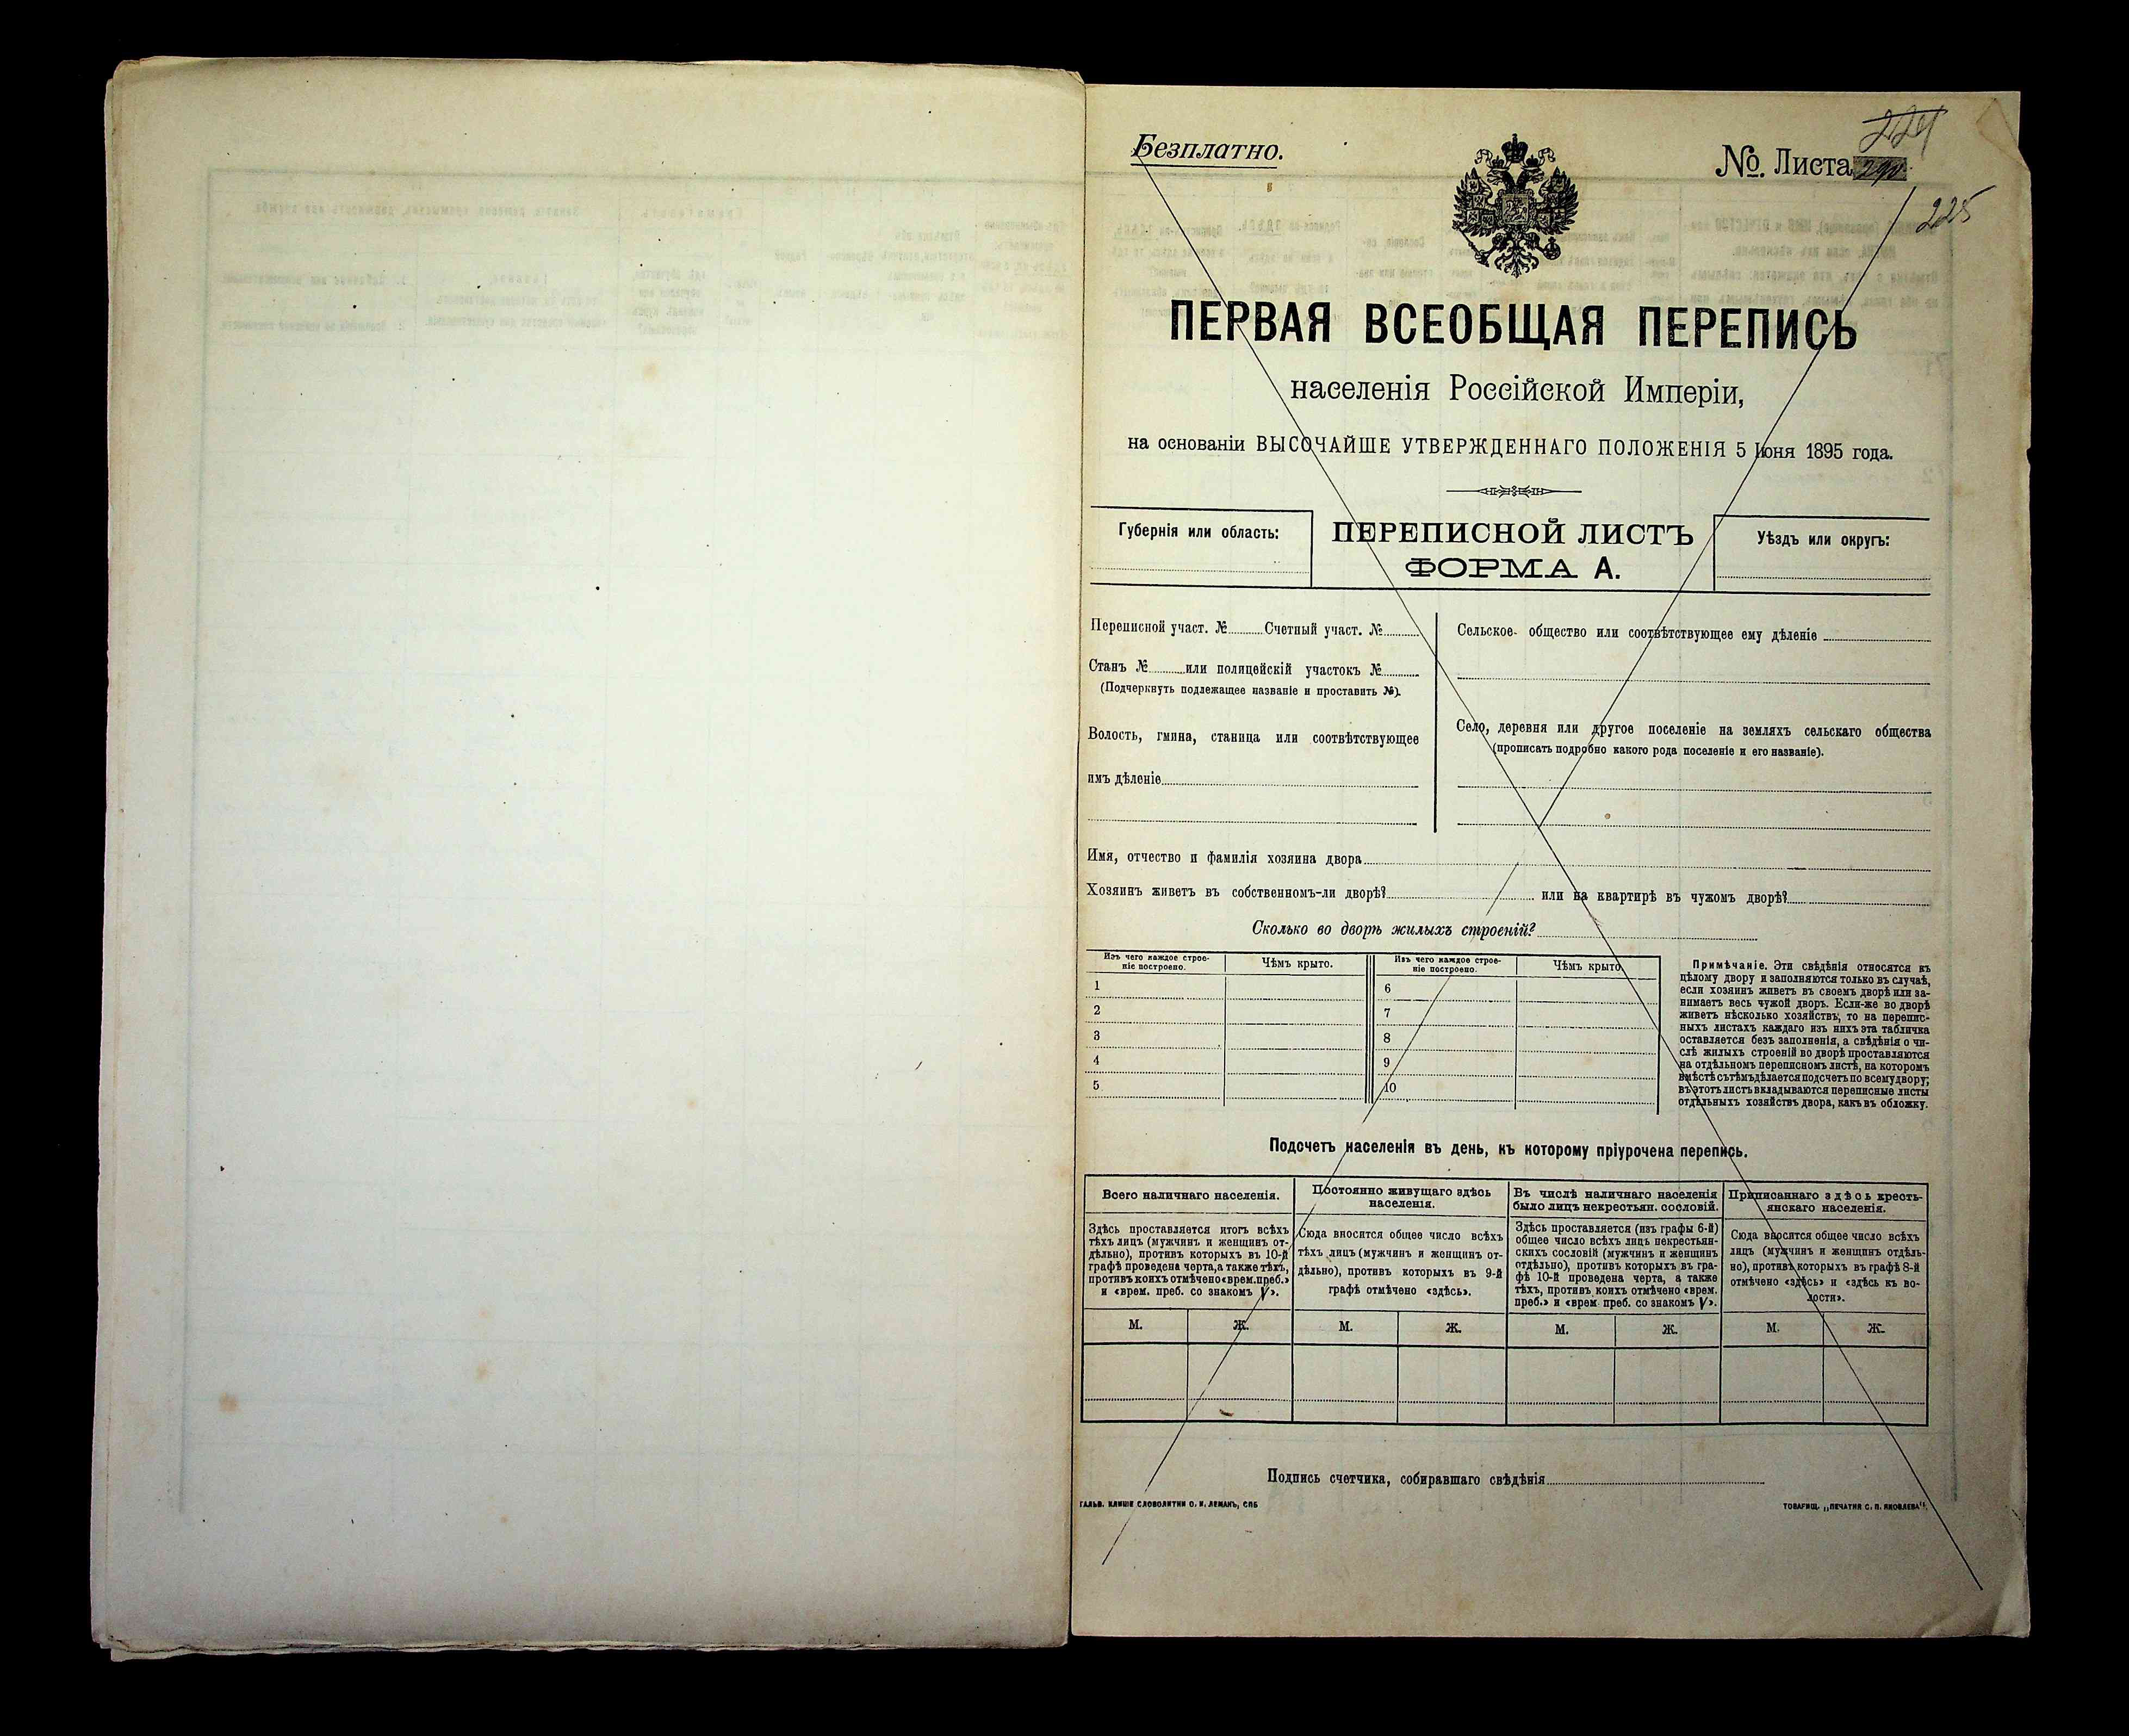 Безплатно.
№. Листа
225
ПЕРВАЯ ВСЕОБЩАЯ ПЕРЕПИСЬ
населенія Россійской Имперіи,
на основаніи ВЫСОЧАЙШЕ УТВЕРЖДЕННАГО ПОЛОЖЕНІЯ 5 Іюня 1895 года.
Губернія или область:
ПЕРЕПИСНОЙ ЛИСТЪ
ФОРМА А.
Уѣздъ или округъ:
Переписной участ. № Счетный участ. №
Станъ № или полицейскій участокъ №
(Подчеркнуть подлежащее названіе и проставить №).
Волость, гмина, станица или соотвѣтствующее
имъ дѣленіе
Сельское общество или соотвѣтствующее ему дѣленіе
Село, деревня или другое поселеніе на земляхъ сельскаго общества
(прописать подробно какого рода поселеніе и его названіе).
Имя, отчество и фамилія хозяина двора
Хозяинъ живетъ въ собственномъ-ли дворѣ? или на квартирѣ въ чужомъ дворѣ?
Сколько во дворѣ жилыхъ строеній?
Изъ чего каждое строе-
ніе построено.
Чѣмъ крыто.
1
2
3
4
5
Изъ чего каждое строе-
ніе построено.
Чѣмъ крыто
6
7
8
9
10
Примѣчаніе. Эти свѣдѣнія относятся къ
цѣлому двору и заполняются только въ случаѣ,
если хозяинъ живетъ въ своемъ дворѣ или за-
нимаетъ весь чужой дворъ. Если-же во дворѣ
живетъ нѣсколько хозяйствъ, то на перепис-
ныхъ листахъ каждаго изъ нихъ эта табличка
оставляется безъ заполненія, а свѣдѣнія о чи-
слѣ жилыхъ строеній во дворѣ проставляются
на отдѣльномъ переписномъ листѣ, на которомъ
вмѣстѣ съ тѣмъ дѣлается подсчетъ по всему двору;
въ этотъ листъ вкладываются переписные листы
отдѣльныхъ хозяйствъ двора, какъ въ обложку.
Подсчетъ населенія въ день, къ которому пріурочена перепись.
Всего наличнаго населенія.
Здѣсь проставляется итогъ всѣхъ
тѣхъ лицъ (мужчинъ и женщинъ от-
дѣльно), противъ которыхъ въ 10-й
графѣ проведена черта, а также тѣхъ,
противъ коихъ отмѣчено «врем. преб.»
и «врем. преб. со знакомъ V».
М. Ж.
Постоянно живущаго здѣсь
населенія.
Сюда вносится общее число всѣхъ
тѣхъ лицъ (мужчинъ и женщинъ от-
дѣльно), противъ которыхъ въ 9-й
графѣ отмѣчено «здѣсь».
М. Ж.
Въ числѣ наличнаго населенія
было лицъ некрестьян. сословій.
Здѣсь проставляется (изъ графы 6-й)
общее число всѣхъ лицъ некрестьян-
скихъ сословій (мужчинъ и женщинъ
отдѣльно), противъ которыхъ въ гра-
фѣ 10-й проведена черта, а также
тѣхъ, противъ коихъ отмѣчено «врем.
преб.» и «врем. преб. со знакомъ V».
М. Ж.
Приписаннаго здѣсь кресть-
янскаго населенія.
Сюда вносится общее число всѣхъ
лицъ (мужчинъ и женщинъ отдѣль-
но), противъ которыхъ въ графѣ 8-й
отмѣчено «здѣсь» и «здѣсь къ во-
лости».
М. Ж.
Подпись счетчика, собиравшаго свѣдѣнія
ГАЛЬВ. КЛИШЕ СЛОВОЛИТНИ О. И. ЛЕМАНЪ, СПБ
ТОВАРИЩ. „ПЕЧАТНЯ С. П. ЯКОВЛЕВА“.